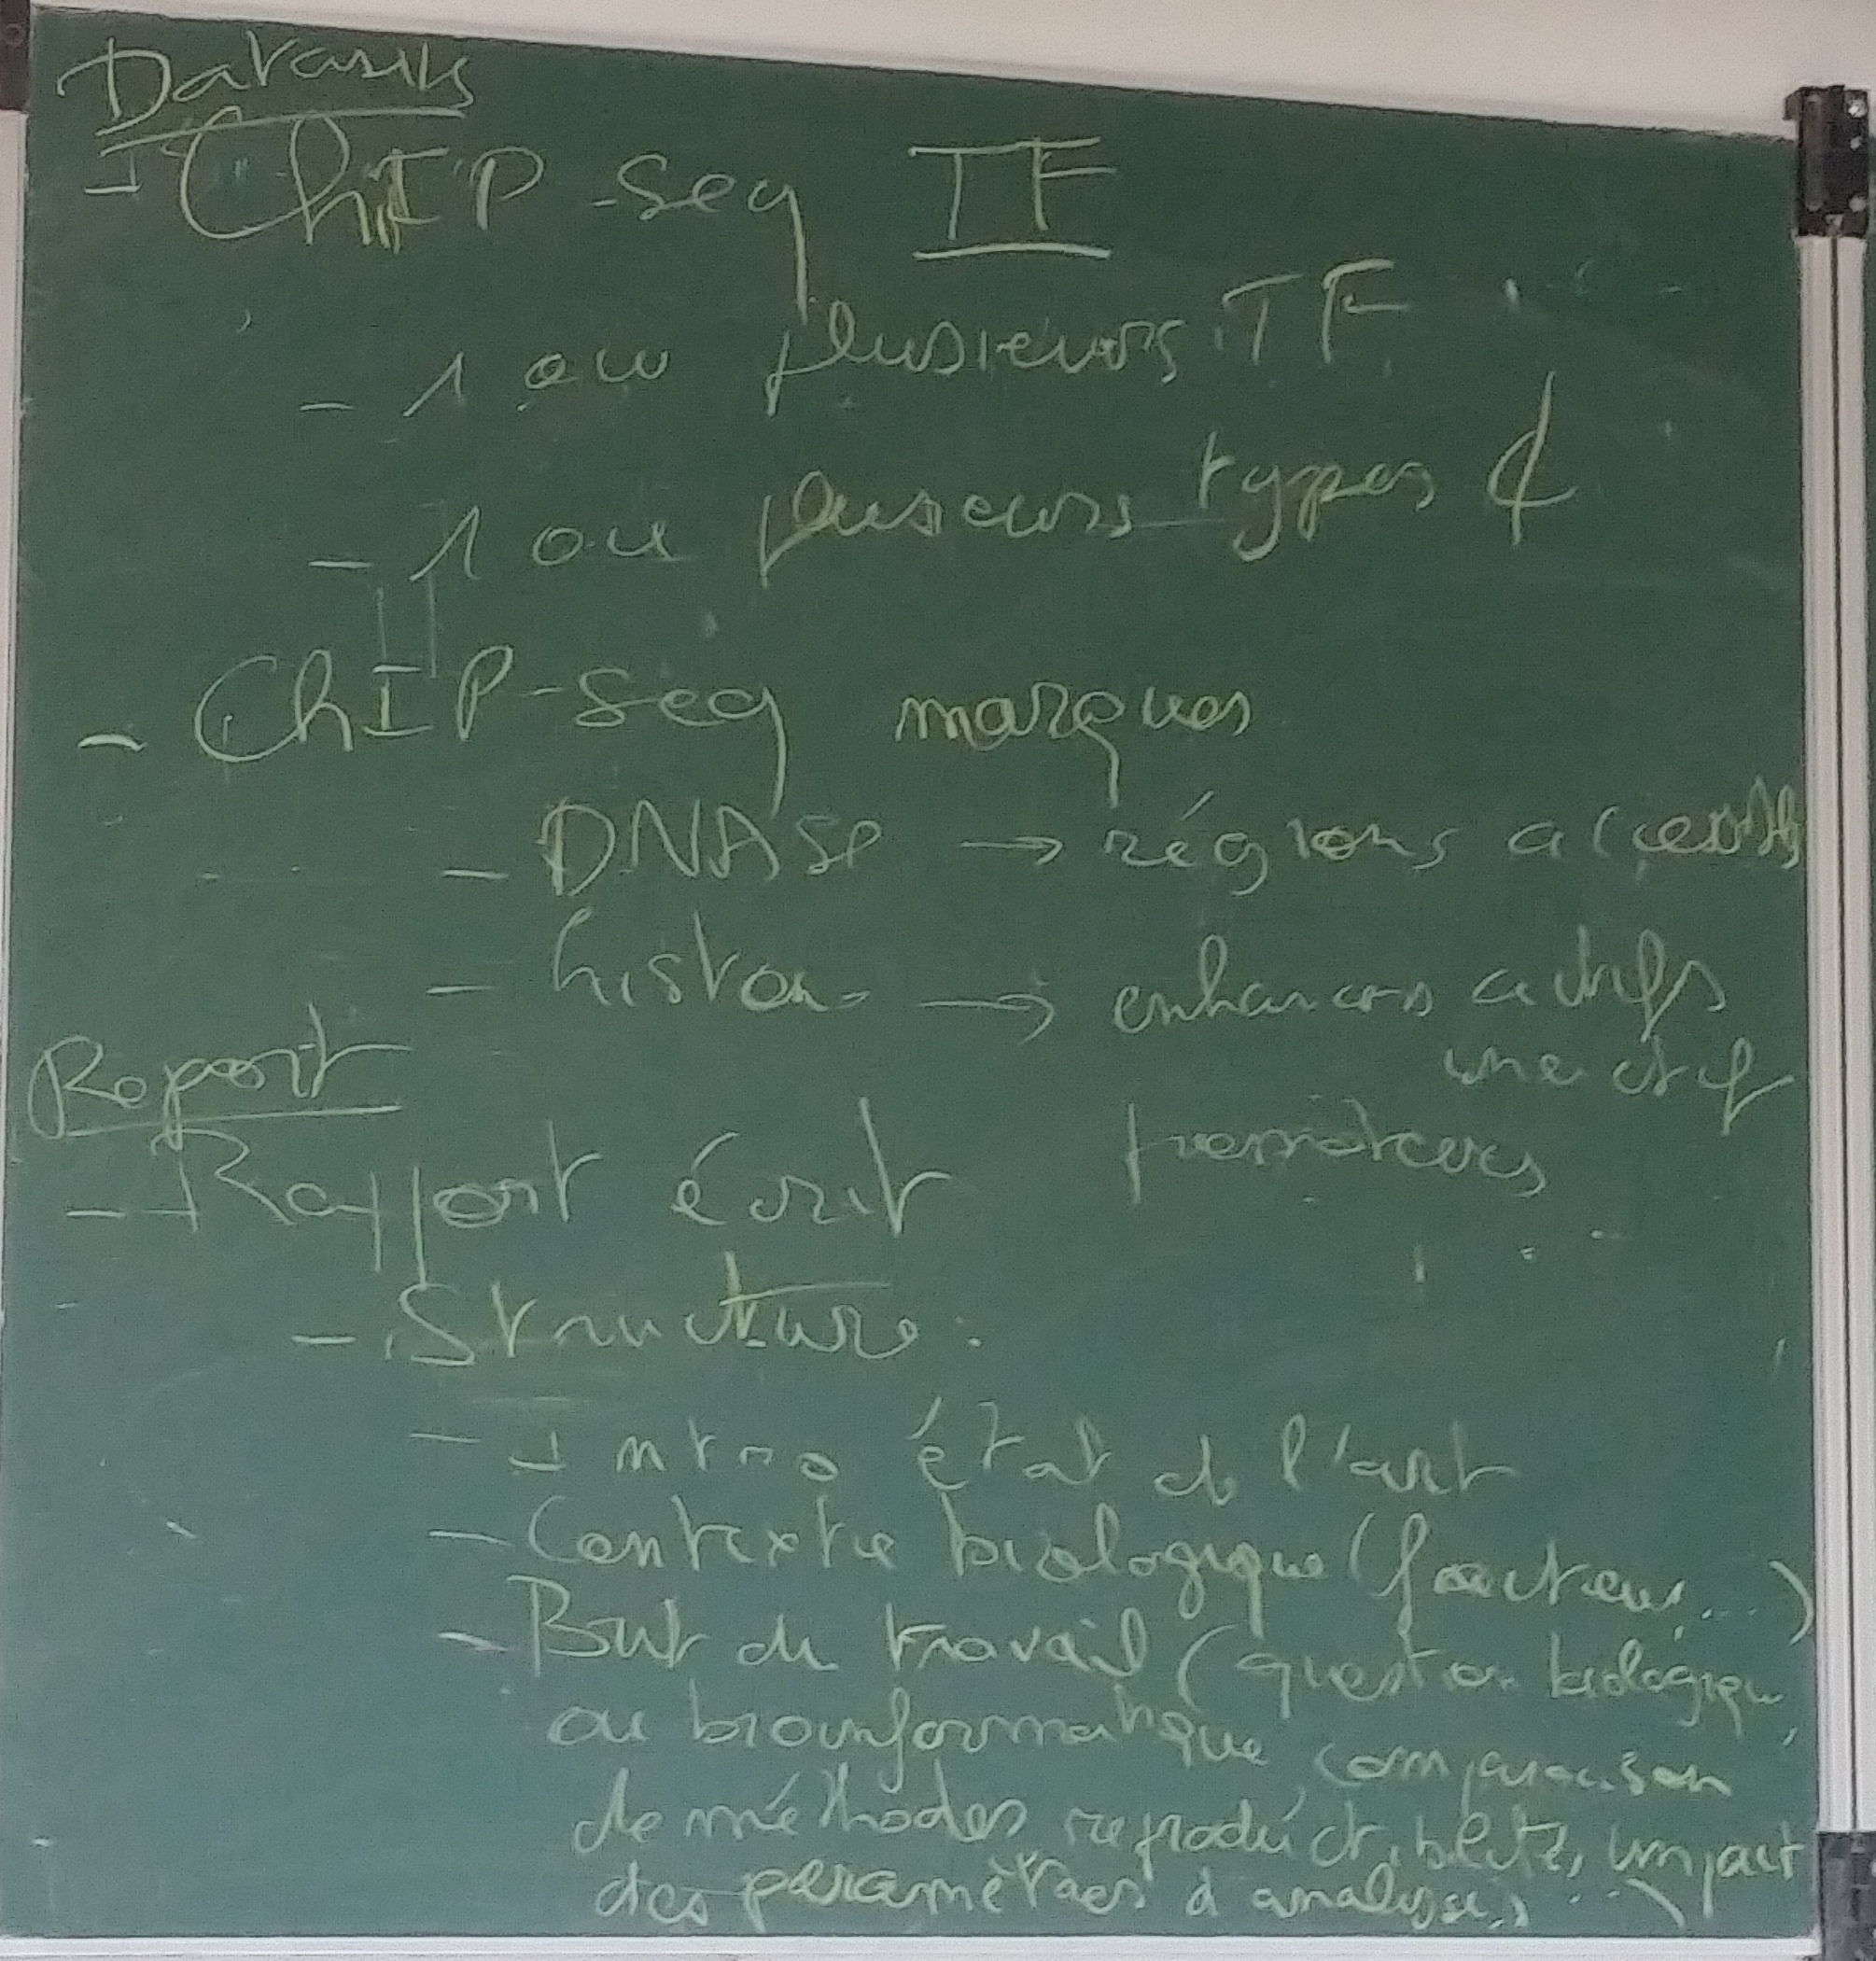 Datasets
- ChIP-seq TF
- 1 ou plusieurs TF
- 1 ou plusieurs types ¢
- ChIP-seq marques
- DNAse → régions accessibles
- histon → enhancers actifs
inactif
promoteurs
Report
- Rapport écrit
- Structure :
- Intro état de l'art
- Contexte biologique (facteur...)
- But du travail (question biologique
ou bioinformatique, comparaison
de méthodes, reproductibilité, impact
des paramètres d'analyse...)